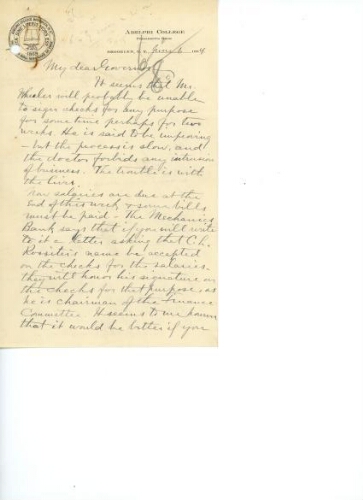 Adelphi College
President's Office
Brooklyn, N.Y. June 6 1909
My dear Governor
It seems that Mr.
Wheeler will probably be unable
to sign checks for any purpose
for some time perhaps for two
weeks. He is said to be improving
– but the process is slow, and
the doctor forbids any intrusion
of business. The trouble is with
the liver.
Now salaries are due at the
end of this week & some bills
must be paid. The Mechanics
Bank says that if you will write
to it a letter asking that C.L.
Rossiter's name be accepted
on the checks for the salaries
they will honor his signature on
the checks for that purpose, as
he is chairman of the Finance
Committee. It seems to me
that it would be better if you